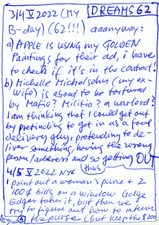 3/4 V 2022 (MY DREAMS 62
B-day) (62!!!) aaanyway:
a) APPLE IS USING my GOLDEN
Paintings for their ad, i have
to check if it's in the contract!
b) Michelle Micholovhiv (my ex-
wife) is about to be tortured
by Mafia? Militia? a warlord?
I am thinking that I could get out
by pretending to get in as a food
delivery guy, pretending to de-
liver something, having the wrong
person/address and so getting OUT
4/5 V 2022 NYC thus
I print out a woman's purse + 2
100$ bills on a window ledge
Edgar takes it, but then we
try to figure out how to return
the purse (but keep the $200